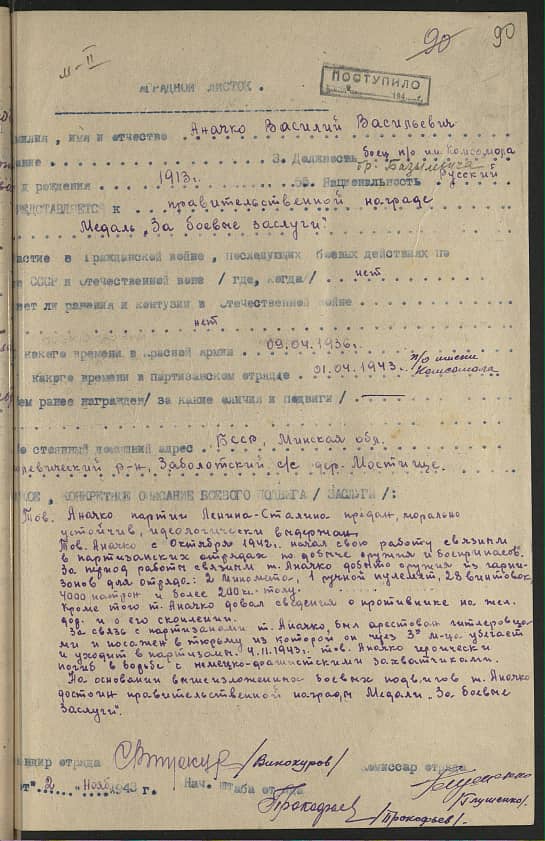 м-II
90 90
АГРАДНОЙ ЛИСТОК.
ПОСТУПИЛО
194
милия, имя и отчество Аначко Василий Васильевич
ание 3. Должность боец п/о им. Комсомола
бр.
д рождения 1913г. 5б. Национальность русский
РЕДСТАВЛЯЕТСЯ К правительственной награде
Медаль „За боевые заслуги".
астие в гражданской войне, последующих боевых действиях по
е СССР и отечественной воне / где, когда/ нет
еет ли ранения и контузии в отечественной войне
нет
какого времени в красной армии 09.04.1936г.
какого времени в партизанском отряде 01.04.1943г. п/о имени Комсомола
ем ранее награжден/ за какие отличия и подвиги/ —
стоянный домашний адрес БССР, Минская обл.
левический р-н, Заболотский с/с дер. Мостище.
КОЕ, КОНКРЕТНОЕ ОПИСАНИЕ БОЕВОГО ПОДВИГА / ЗАСЛУГИ /:
Тов. Аначко партии Ленина-Сталина предан, морально
устойчив, идеологически выдержан
Тов. Аначко с Октября 1942г. начал свою работу связним
в партизанских отрядах по добыче оружия и боеприпасов.
За период работы связним т. Аначко добыто оружия из гарни-
зонов для отряда: 2 миномета, 1 ручной пулемет, 28 винтовок,
4000 патрон и более 200 кг. толу.
Кроме того т. Аначко довал сведения о противнике на жел.
дор. и о его скоплении.
За связь с партизанами т. Аначко, был арестован гитлеровца-
ми и посажен в тюрьму из которой он через 3 м-ца убегает
и уходит в партизаны. 4.11.1943г. тов. Аначко героически
погиб в борьбе с немецко-фашистскими захватчиками.
На основании вышеизложенных боевых подвигов т. Аначко
достоин правительственной награды Медали „За боевые
заслуги".
ндир отряда /Винокуров/ комиссар отряда
" 2 " Нояб 1943 г. Нач. штаба отряда /Глушенко/.
Прокофьев /Прокофьев/.